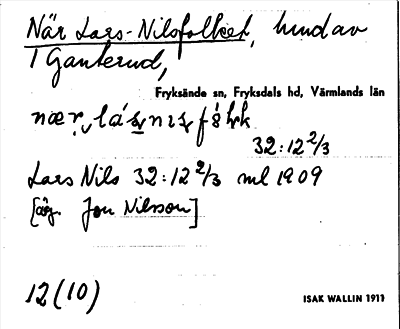 När Lars-Nilsfolket, hmd av
1 Ganterud,
Fryksände sn, Fryksdals hd, Värmlands län
32:12 2/3
Lars Nils 32:12 2/3 ml 1909
[äg. Jon Nilsson]
12(10)
ISAK WALLIN 1911